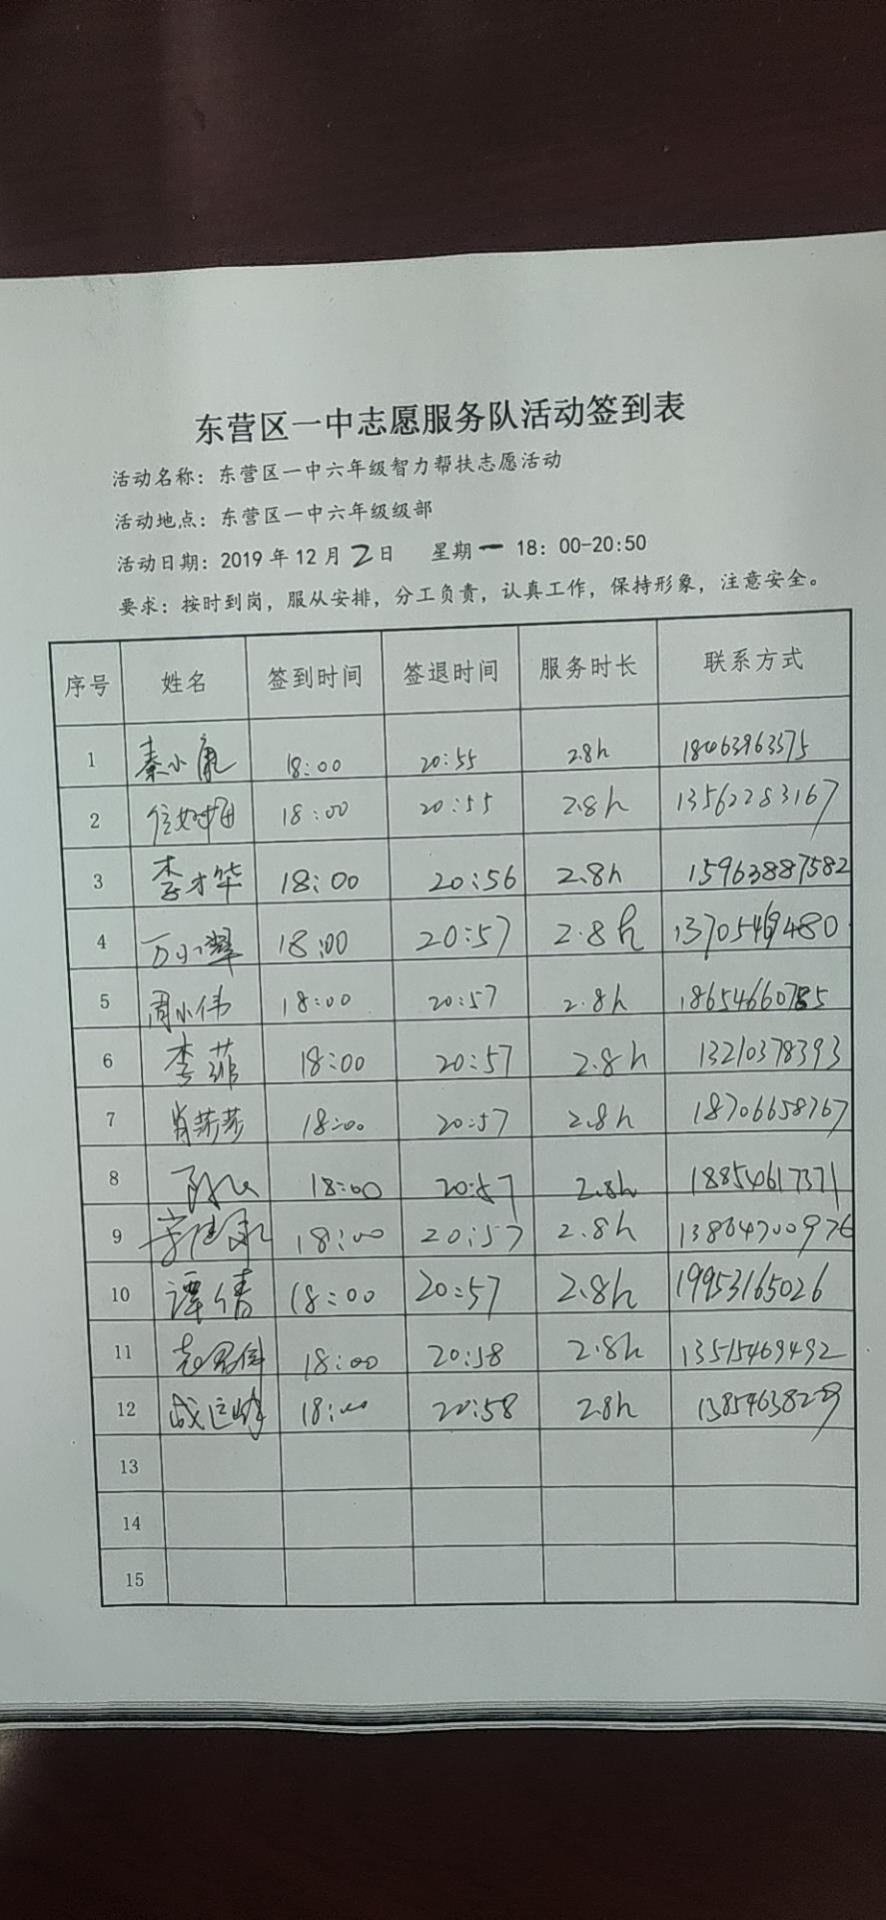 东营区一中志愿服务队活动签到表
活动名称：东营区一中六年级智力帮扶志愿活动
活动地点：东营区一中六年级级部
活动日期：2019年12月2日 星期一 18：00-20:50
要求：按时到岗，服从安排，分工负责，认真工作，保持形象，注意安全。
序号 姓名 签到时间 签退时间 服务时长 联系方式
1 秦小康 18:00 20:55 2.8h 18063963575
2 18:00 20:55 2.8h 13562283167
3 李才华 18:00 20:56 2.8h 15963887582
4 万小翠 18:00 20:57 2.8h 13705469480
5 周小伟 18:00 20:57 2.8h 18654660785
6 李菲 18:00 20:57 2.8h 13210378393
7 肖莎莎 18:00 20:57 2.8h 18706658767
8 18:00 20:57 2.8h 18854617371
9 18:00 20:57 2.8h 13864700976
10 谭倩 18:00 20:57 2.8h 19953165026
11 18:00 20:58 2.8h 13515469492
12 18:00 20:58 2.8h
13
14
15